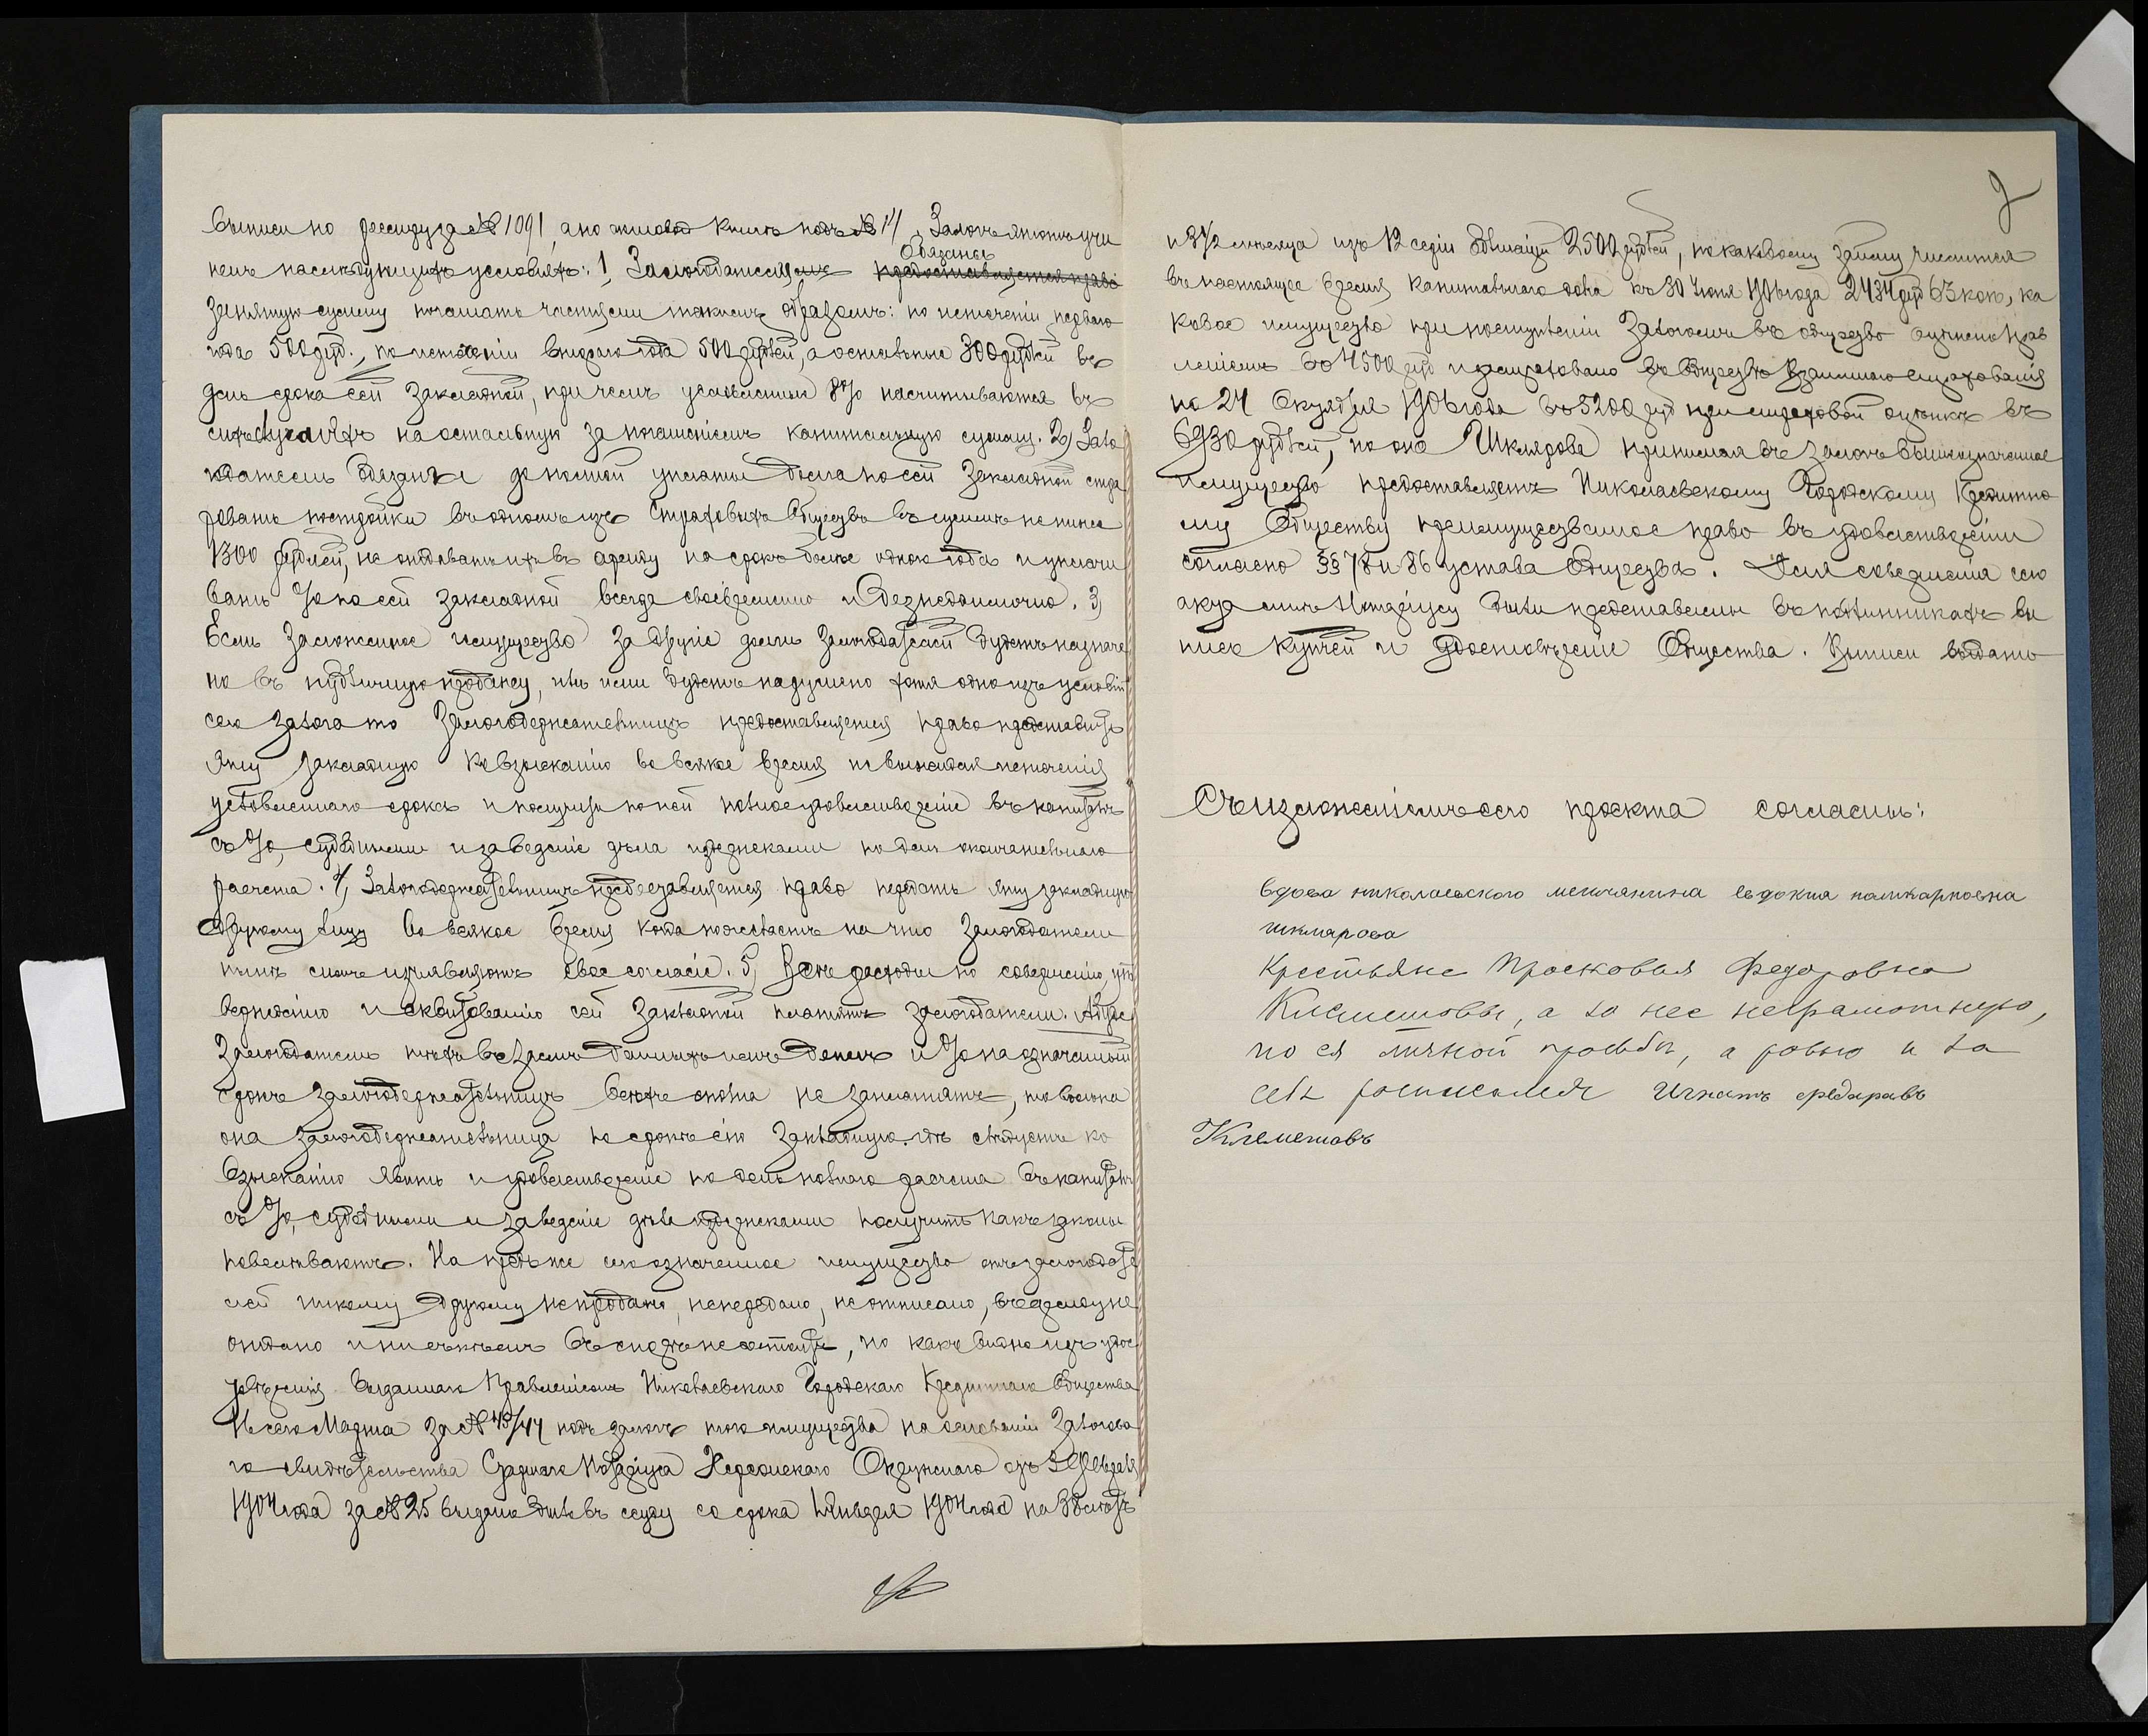 Выписи по реестру за № 1091, а по актовой книгѣ подъ № 14, Залогъ этотъ учи
ненъ на слѣдующихъ условіяхъ: 1, Залогодатели обязаны предоставляется право
занятую сумму погашать частями такимъ образомъ: по истеченіи перваго
года 500 руб., по истеченіи второго года 500 рублей, а остальные 300 рублей въ
день срока сей закладной, при чемъ условленные 8% насчитываются въ
сихъ случаяхъ на остальную за погашеніемъ капитальную сумму. 2) Зало
годатели обязаны до полной уплаты долга по сей закладной стра
ховать постройки въ одномъ изъ Страховыхъ Обществъ въ суммѣ не менѣе
1300 рублей, не отдавать ихъ въ аренду на срокъ болѣе одного года и уплачи
вать % по сей закладной всегда своевременно и безнедоимочно. 3)
Если заложенное имущество за другіе долги Залогодателей будетъ назначе
но въ публичную продажу, или ими будетъ нарушено хотя одно изъ условій
сего залога то Залогодержательницѣ предоставляется право представить
эту закладную ко взысканію во всякое время не выжидая истеченія
условленнаго срока и получить по ней полное удовлетвореніе въ капиталѣ
съ %, судебными и за веденіе дѣла издержками по день окончательнаго
расчета. 4, Залогодержательницѣ предоставляется право передать эту закладную
другому лицу во всякое время когда пожелаетъ на что Залогодатели
нынѣ симъ изъявляютъ свое согласіе. 5) Всѣ расходы по совершенію, утве
ржденію и ликвидованію сей закладной платятъ залогодатели. А буде
Залогодатели тѣхъ взаемъ данныхъ имъ денегъ и % на означенный
срокъ залогодержательницѣ всѣхъ сполна не заплатятъ, то вольна
она залогодержательница по срокѣ сію закладную гдѣ слѣдуетъ ко
взысканію явить и удовлетвореніе по день полнаго расчета въ капиталѣ
съ %, судебными и за веденіе дѣла издержками получить какъ законы
повелѣваютъ. На предъ же сего означенное имущество отъ залогодате
лей никому другому не продано, не передано, не отписано, въ аренду не
отдано и ни съ кѣмъ въ спорѣ не состоитъ, но какъ видно изъ удос
товѣренія выданнаго Правленіемъ Николаевскаго Городскаго Кредитнаго Общества
сего Марта за № 40/44 подъ залогъ того имущества на основаніи Залогова
го свидѣтельства Старшаго Нотаріуса Херсонскаго Окружнаго отъ 3 Февраля
1904 года за № 25 выдано было въ ссуду со срока 1 Января 1904 года на 38 лѣтъ
2
и 3½ мѣсяца изъ 12 серіи облигацій 2500 рублей, по каковому займу числится
въ настоящее время капитальнаго долга къ 30 Іюня 1906 года 2434 руб 63 коп, ка
ковое имущество при поступленіи Залогомъ въ общество оцѣнено Прав
леніемъ въ 4500 руб и застраховано въ Обществѣ взаимнаго страхованія
по 24 Октября 1906 года въ 5200 руб при страховой оцѣнкѣ въ
6930 рублей, но она Шклярова принимая въ залогъ вышеозначенное
имущество предоставляетъ Николаевскому Городскому Кредитно
му Обществу преимущественное право въ удовлетвореніи
согласно §§ 78 и 86 устава Общества. Для совершенія сего
акта мнѣ Нотаріусу были представлены въ подлинникахъ вы
пись купчей и удостовѣреніе Общества. Выписи выдать
Съ изложеніемъ сего проекта согласны:
вдова николаевского мещянина евдокия поликарповна
шклярова
Крестьяне Просковья Федоровна
Клеметовы, а за нее неграмотную,
по ея личной просьбѣ, а ровно и за
себя росписался Игнатъ Федаравъ
Клеметовъ